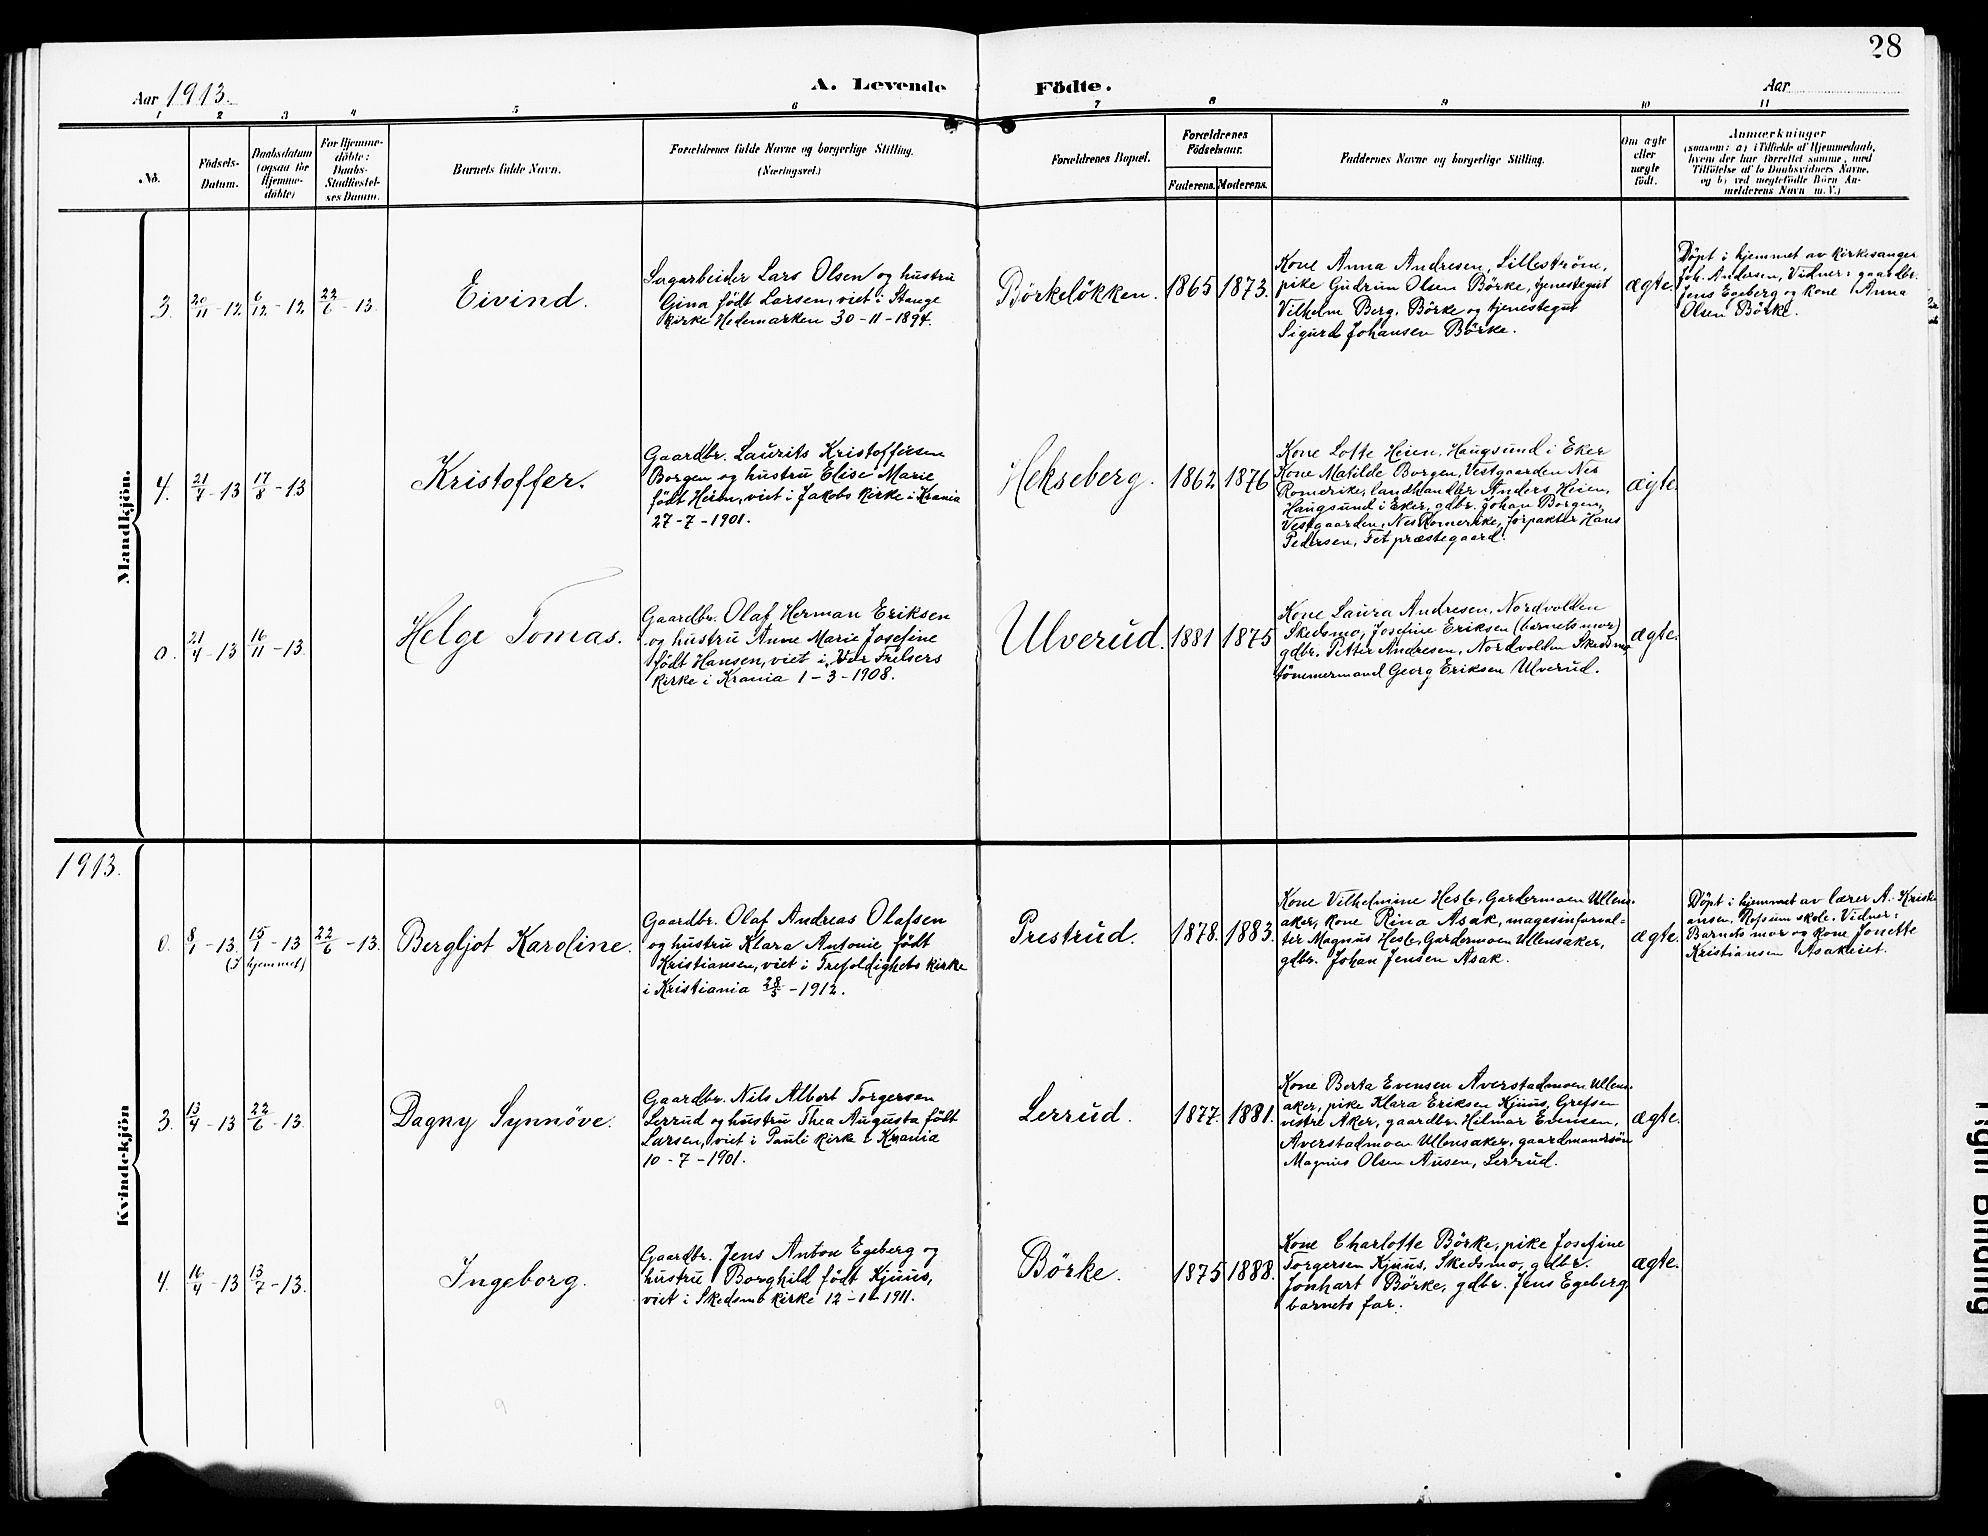 28
Aar 1913.
A. Levende Födte.
Aar
1 2 3 4 5 6 7 8 9 10 11
No.
Födsels-
Datum.
Daabsdatum
(ogsaa for
Hjemme-
döbte)
For Hjemme-
döbte:
Daabs-
Stadfæstel-
ses Datum.
Barnets fulde Navn.
Forældrenes fulde Navne og borgerlige Stilling.
(Næringsvei.)
Forældrenes Bopæl.
Forældrenes
Födselsaar.
Faderens. Moderens.
Faddernes Navne og borgerlige Stilling.
Om ægte
eller
uægte
födt.
Anmærkninger
(saasom: a) i Tilfælde af Hjemmedaab,
hvem der har forrettet samme, med
Tilföielse af to Daabsvidners Navne,
og b) ved uægtefödte Börn An-
melderens Navn m. V.)
Mandkjön.
3. 20/11-12 6/12-12 22/6-13.
Eivind.
Sagarbeider Lars Olsen og hustru
Gina født Larsen, viet i Stange
kirke Hedemarken 30-11-1894.
Börkelökken.
1865 1873.
Kone Anna Andresen, Lillestrøm,
pike Gudrun Olsen Börke, tjenestegut
Vilhelm Berg, Börke og tjenestegut
Sigurd Johansen Börke.
ægte.
Døpt i hjemmet av kirkesanger
Joh. Andersen, Vidner: gaardbr.
Jens Egeberg og kone Anna
Olsen Börke.
4. 21/4-13 17/8-13
Kristoffer.
Gaardbr. Laurits Kristoffersen
Borgen og hustru Elise Marie
født Heien, viet i Jakobs kirke i Krania
27-7-1901.
Hekseberg.
1862 1876
Kone Lotte Heien, Haugsund i Eker
Kone Matilde Borgen, Vestgaarden Nes
Romerike, landhandler Anders Heien,
Haugsund i Eker, gdbr. Johan Borgen,
Vestgaarden, Nes Romerike, forpakter Hans
Pedersen, Fet præstegaard.
ægte.
0. 21/4-13 16/11-13.
Helge Tomas.
Gaardbr. Olaf Herman Eriksen
og hustru Anne Marie Josefine
født Hansen, viet i Vor Frelsers
kirke i Krania 1-3-1908.
Ulverud.
1881 1875
Kone Laura Andresen, Nordvolden
Skedsmo, Josefine Eriksen (barnets mor)
gdbr. Petter Andresen, Nordvolden Skedsmo,
tømmermand Georg Eriksen Ulverud.
ægte.
1913.
Kvindekjön
0. 8/1-13. 15/1-13 22/6-13.
(I hjemmet)
Bergljot Karoline.
Gaardbr. Olaf Andreas Olafsen
og hustru Klara Antonie født
Kristiansen, viet i Trefoldighets kirke
i Kristiania 28/5-1912.
Prestrud.
1878. 1883.
Kone Vilhelmine Hesle, Gardermoen Ullens-
aker, kone Rina Asak, magasinforval-
ter Magnus Hesle, Gardermoen Ullensaker,
gdbr. Johan Jensen Asak.
ægte.
Døpt i hjemmet av lærer A. Kristi-
ansen, skole. Vidner:
Barnets mor og kone Jonette
Kristiansen Asakeiet.
3. 13/4-13 22/6-13.
Dagny Synnöve.
Gaardbr. Nils Albert Torgersen
Lerrud og hustru Thea Augusta født
Larsen, viet i Pauli kirke i Krania
10-7-1901.
Lerrud.
1877. 1881.
Kone Berta Evensen Averstadmoen Ullens-
aker, pike Klara Eriksen Kjuus, Grefsen
vestre Aker, gaardbr. Hilmar Evensen,
Averstadmoen Ullensaker, gaardmandssøn
Magnus Olsen Ausen, Lerrud.
ægte.
4. 16/4-13 13/7-13.
Ingeborg.
Gaardbr. Jens Anton Egeberg og
hustru Borghild født Kjuus,
viet i Skedsmo kirke 12-11-1911.
Börke.
1875 1888.
Kone Charlotte Börke, pike Josefine
Torgersen Kjuus, Skedsmo, gdbr.
Jonhart Börke, gdbr. Jens Egeberg,
barnets far.
ægte.
Tight Binding